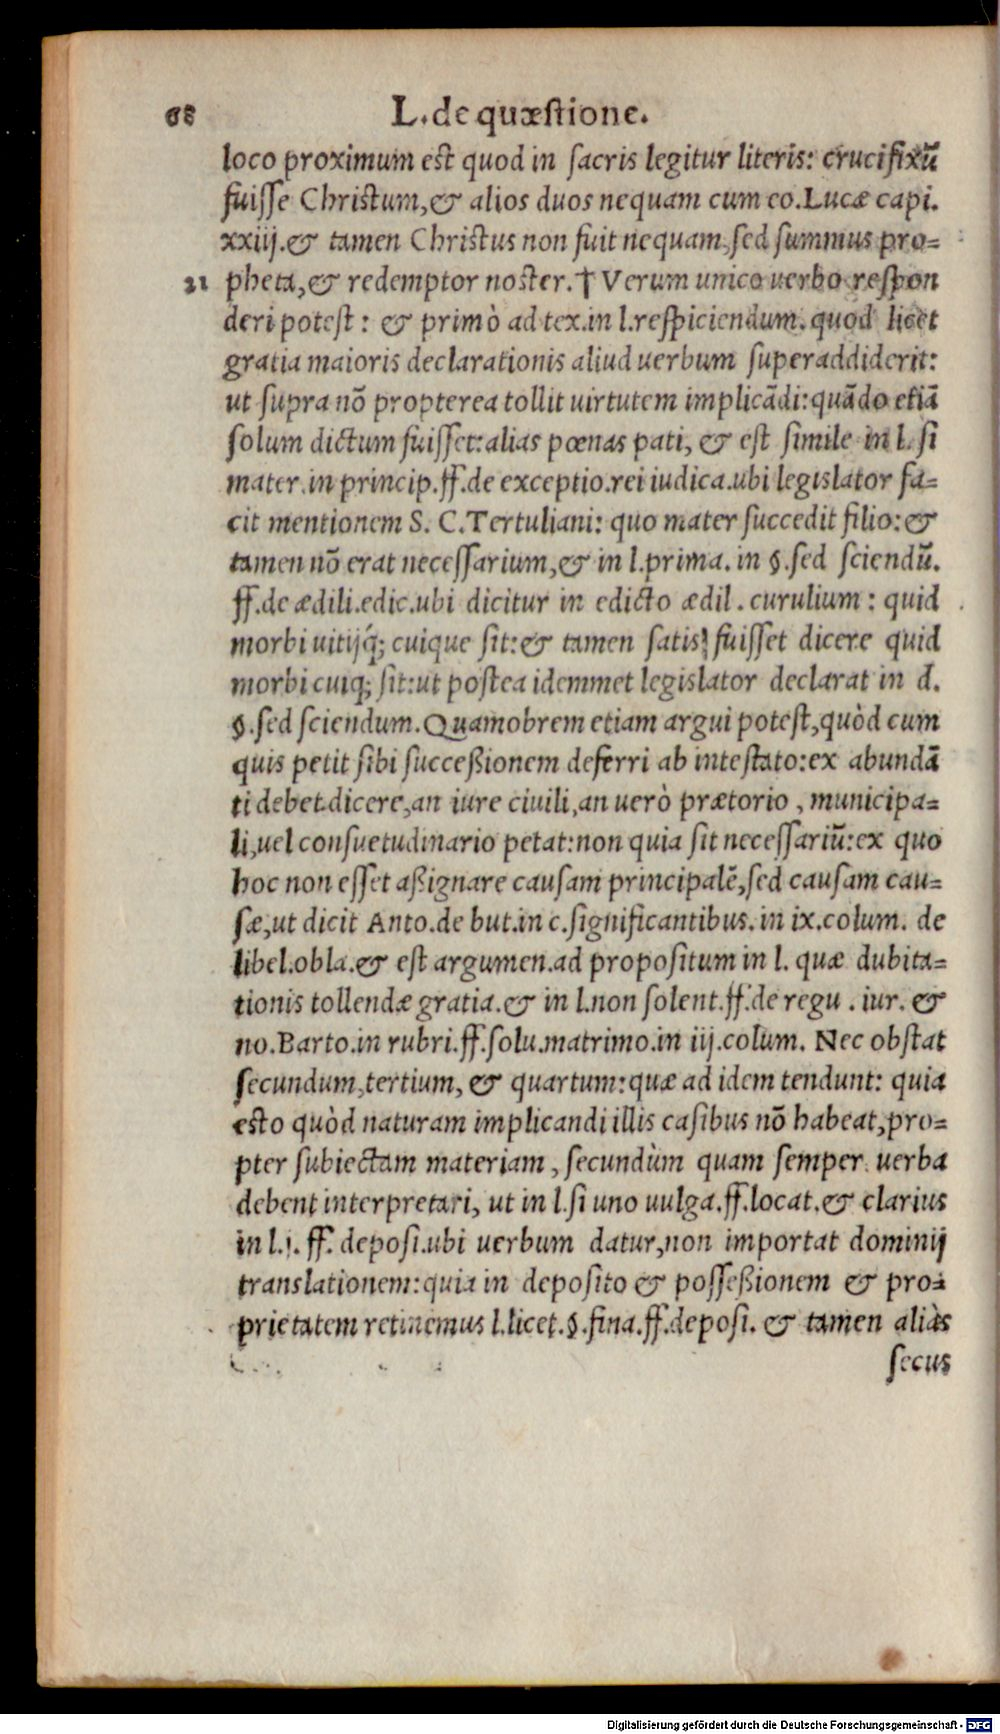 68 L. de quæstione.
loco proximum est quod in sacris legitur literis: crucifixū
fuisse Christum, & alios duos nequam cum eo. Lucæ capi.
xxiij. & tamen Christus non fuit nequam, sed summus pro=
21 pheta, & redemptor noster. † Verum unico uerbo respon
deri potest: & primò ad tex. in l. respiciendum. quod licet
gratia maioris declarationis aliud uerbum superaddiderit:
ut supra nō propterea tollit uirtutem implicādi: quādo etiā
solum dictum fuisset: alias pœnas pati, & est simile in l. si
mater. in princip. ff. de exceptio. rei iudica. ubi legislator fa=
cit mentionem S. C. Tertuliani: quo mater succedit filio: &
tamen nō erat necessarium, & in l. prima. in §. sed sciendū.
ff. de ædili. edic. ubi dicitur in edicto ædil. curulium: quid
morbi uitijq́; cuique sit: & tamen satis fuisset dicere quid
morbi cuiq; sit: ut postea idemmet legislator declarat in d.
§. sed sciendum. Quamobrem etiam argui potest, quòd cum
quis petit sibi successionem deferri ab intestato: ex abundā
ti debet dicere, an iure ciuili, an uerò prætorio, municipa=
li, uel consuetudinario petat: non quia sit necessariū: ex quo
hoc non esset assignare causam principalē, sed causam cau=
sæ, ut dicit Anto. de but. in c. significantibus. in ix. colum. de
libel. obla. & est argumen. ad propositum in l. quæ dubita=
tionis tollendæ gratia. & in l. non solent. ff. de regu. iur. &
no. Barto. in rubri. ff. solu. matrimo. in iij. colum. Nec obstat
secundum, tertium, & quartum: quæ ad idem tendunt: quia
esto quòd naturam implicandi illis casibus nō habeat, pro=
pter subiectam materiam, secundùm quam semper uerba
debent interpretari, ut in l. si uno uulga. ff. locat. & clarius
in l. j. ff. deposi. ubi uerbum datur, non importat dominij
translationem: quia in deposito & possessionem & pro=
prietatem retinemus l. licet. §. fina. ff. deposi. & tamen aliàs
secus
Digitalisierung gefördert durch die Deutsche Forschungsgemeinschaft - DFG